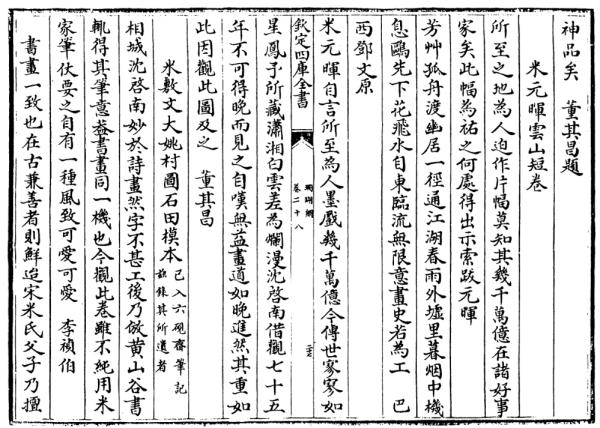 神品矣　董其昌題
米元暉雲山短卷
所至之地為人迫作片幅莫知其幾千萬億在諸好事
家矣此幅為祐之何處得出示索跋元暉
芳艸孤舟渡幽居一徑通江湖春雨外墟里暮烟中機
息鷗先下花飛水自東臨流無限意畫史若為工　巴
西鄧文原
米元暉自言所至為人墨戲幾千萬億今傳世寥寥如
欽定四庫全書
珊瑚網
卷二十八
星鳳予所藏瀟湘白雲差為爛漫沈啓南借觀七十五
年不可得晚而見之自嘆無益畫道如晚進然其重如
此因觀此圖及之　董其昌
米敷文大姚村圖石田模本
已入六硯齋筆記
茲錄其所遺者
相城沈啓南妙於詩畫然字不甚工後乃倣黃山谷書
輒得其筆意葢書畫同一機也今觀此卷雖不純用米
家筆仗要之自有一種風致可愛可愛　李禎伯
書畫一致也在古兼善者則鮮迨宋米氏父子乃擅